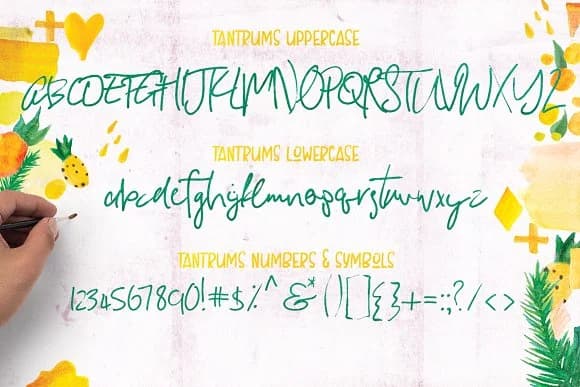 TANTRUMS UPPERCASE
ABCDEFGHIJKLMNOPQRSTUVWXYZ
TANTRUMS LOWERCASE
abcdefghijklmnopqrstuvwxyz
TANTRUMS NUMBERS & SYMBOLS
1234567890!#$%^&*()[]{}+=:;?/<>